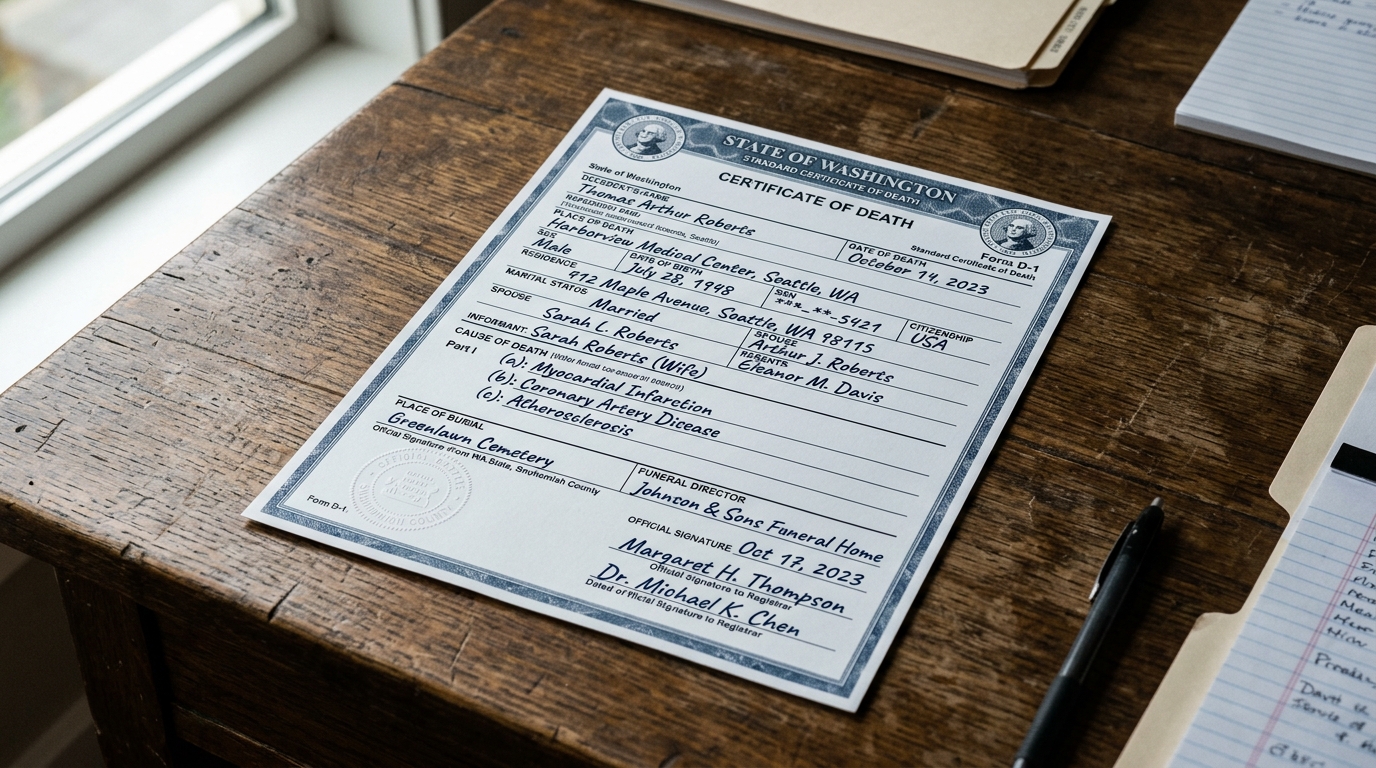 STATE OF WASHINGTON
STANDARD CERTIFICATE OF DEATH
State of Washington
CERTIFICATE OF DEATH
Standard Certificate of Death
Form D-1
Thomas Arthur Roberts
DATE OF DEATH
October 14, 2023
PLACE OF DEATH
Harborview Medical Center, Seattle, WA
SEX
Male
DATE OF BIRTH
July 28, 1948
SSN
***-**-5421
CITIZENSHIP
USA
RESIDENCE
912 Maple Avenue, Seattle, WA 98115
MARITAL STATUS
Married
SPOUSE
Sarah L. Roberts
SPOUSE
Arthur J. Roberts
INFORMANT: Sarah Roberts (Wife)
Eleanor M. Davis
CAUSE OF DEATH
Part I
(a): Myocardial Infarction
(b): Coronary Artery Disease
(c): Atherosclerosis
PLACE OF BURIAL
Greenlawn Cemetery
FUNERAL DIRECTOR
Johnson & Sons Funeral Home
Form D-1
OFFICIAL SIGNATURE Oct 17, 2023
Margaret H. Thompson
Official Signature to Registrar
Dr. Michael K. Chen
Signature to Registrar